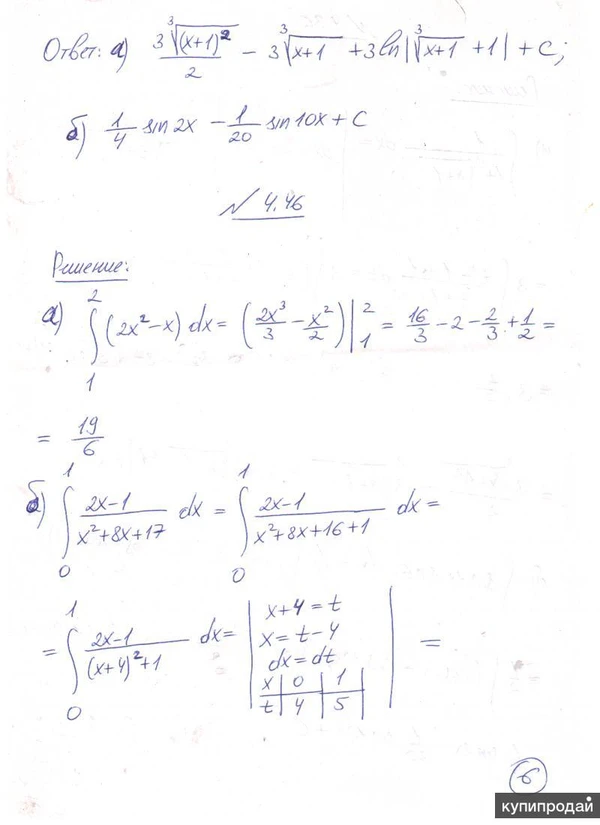 Ответ: а) 3∛(x+1)²/2 − 3∛(x+1) + 3ln|∛(x+1) + 1| + C;
б) 1/4 sin 2x − 1/20 sin 10x + C
№ 4.46
Решение:
а) ∫₁² (2x² − x) dx = (2x³/3 − x²/2)|₁² = 16/3 − 2 − 2/3 + 1/2 =
= 19/6
б) ∫₀¹ (2x−1)/(x²+8x+17) dx = ∫₀¹ (2x−1)/(x²+8x+16+1) dx =
= ∫₀¹ (2x−1)/((x+4)²+1) dx = | x+4 = t
x = t−4
dx = dt
x | 0 | 1
t | 4 | 5 | =
6
купипродай